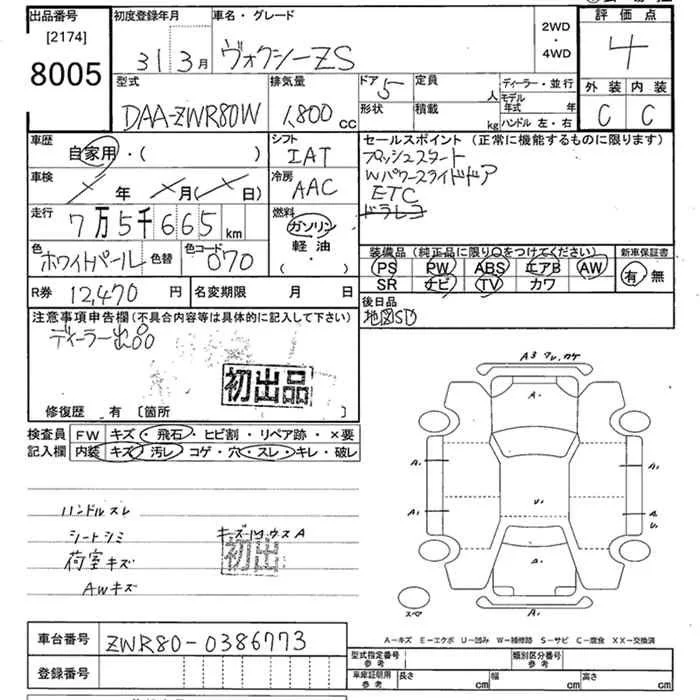 出品番号 [2174] 8005
初度登録年月 31 3月
車名・グレード ヴォクシーZS
2WD・4WD
評価点 4
外装 内装
C C
型式 DAA-ZWR80W
排気量 1,800 cc
ドア 5
定員 人
形状 積載 kg
ディーラー・並行
モデル年式 年
ハンドル 左・右
車歴 自家用・( )
シフト IAT
車検 年 月( 日)
冷房 AAC
走行 7万5千665 km
燃料 ガソリン 軽油 ( ・ )
色 ホワイトパール 色替
色コード 070
R券 12,470 円 名変期限 月 日
セールスポイント (正常に機能するものに限ります)
プッシュスタート
Wパワースライドドア
ETC
ドラレコ
装備品 (純正品に限り○をつけてください)
PS PW ABS エアB AW
SR ナビ TV カワ
新車保証書 有 無
後日品
地図SD
注意事項申告欄 (不具合内容等は具体的に記入して下さい)
ディーラー出品
初出品
修復歴 有 [箇所 ]
検査員記入欄 FW キズ・飛石・ヒビ割・リペア跡・×要
内装 キズ・汚レ・コゲ・穴・スレ・キレ・破レ
ハンドルスレ
シートシミ
荷室キズ
AWキズ
初出
A3
A.
A.
A.
A.
A.
U.
U.
A.
A.
A.
スペア
A-キズ E-エクボ U-凹み W-補修跡 S-サビ C-腐食 XX-交換済
車台番号 ZWR80-0386773
登録番号
型式指定番号 参考
類別区分番号 参考
車庫証明用 参考 長さ cm 幅 cm 高さ cm